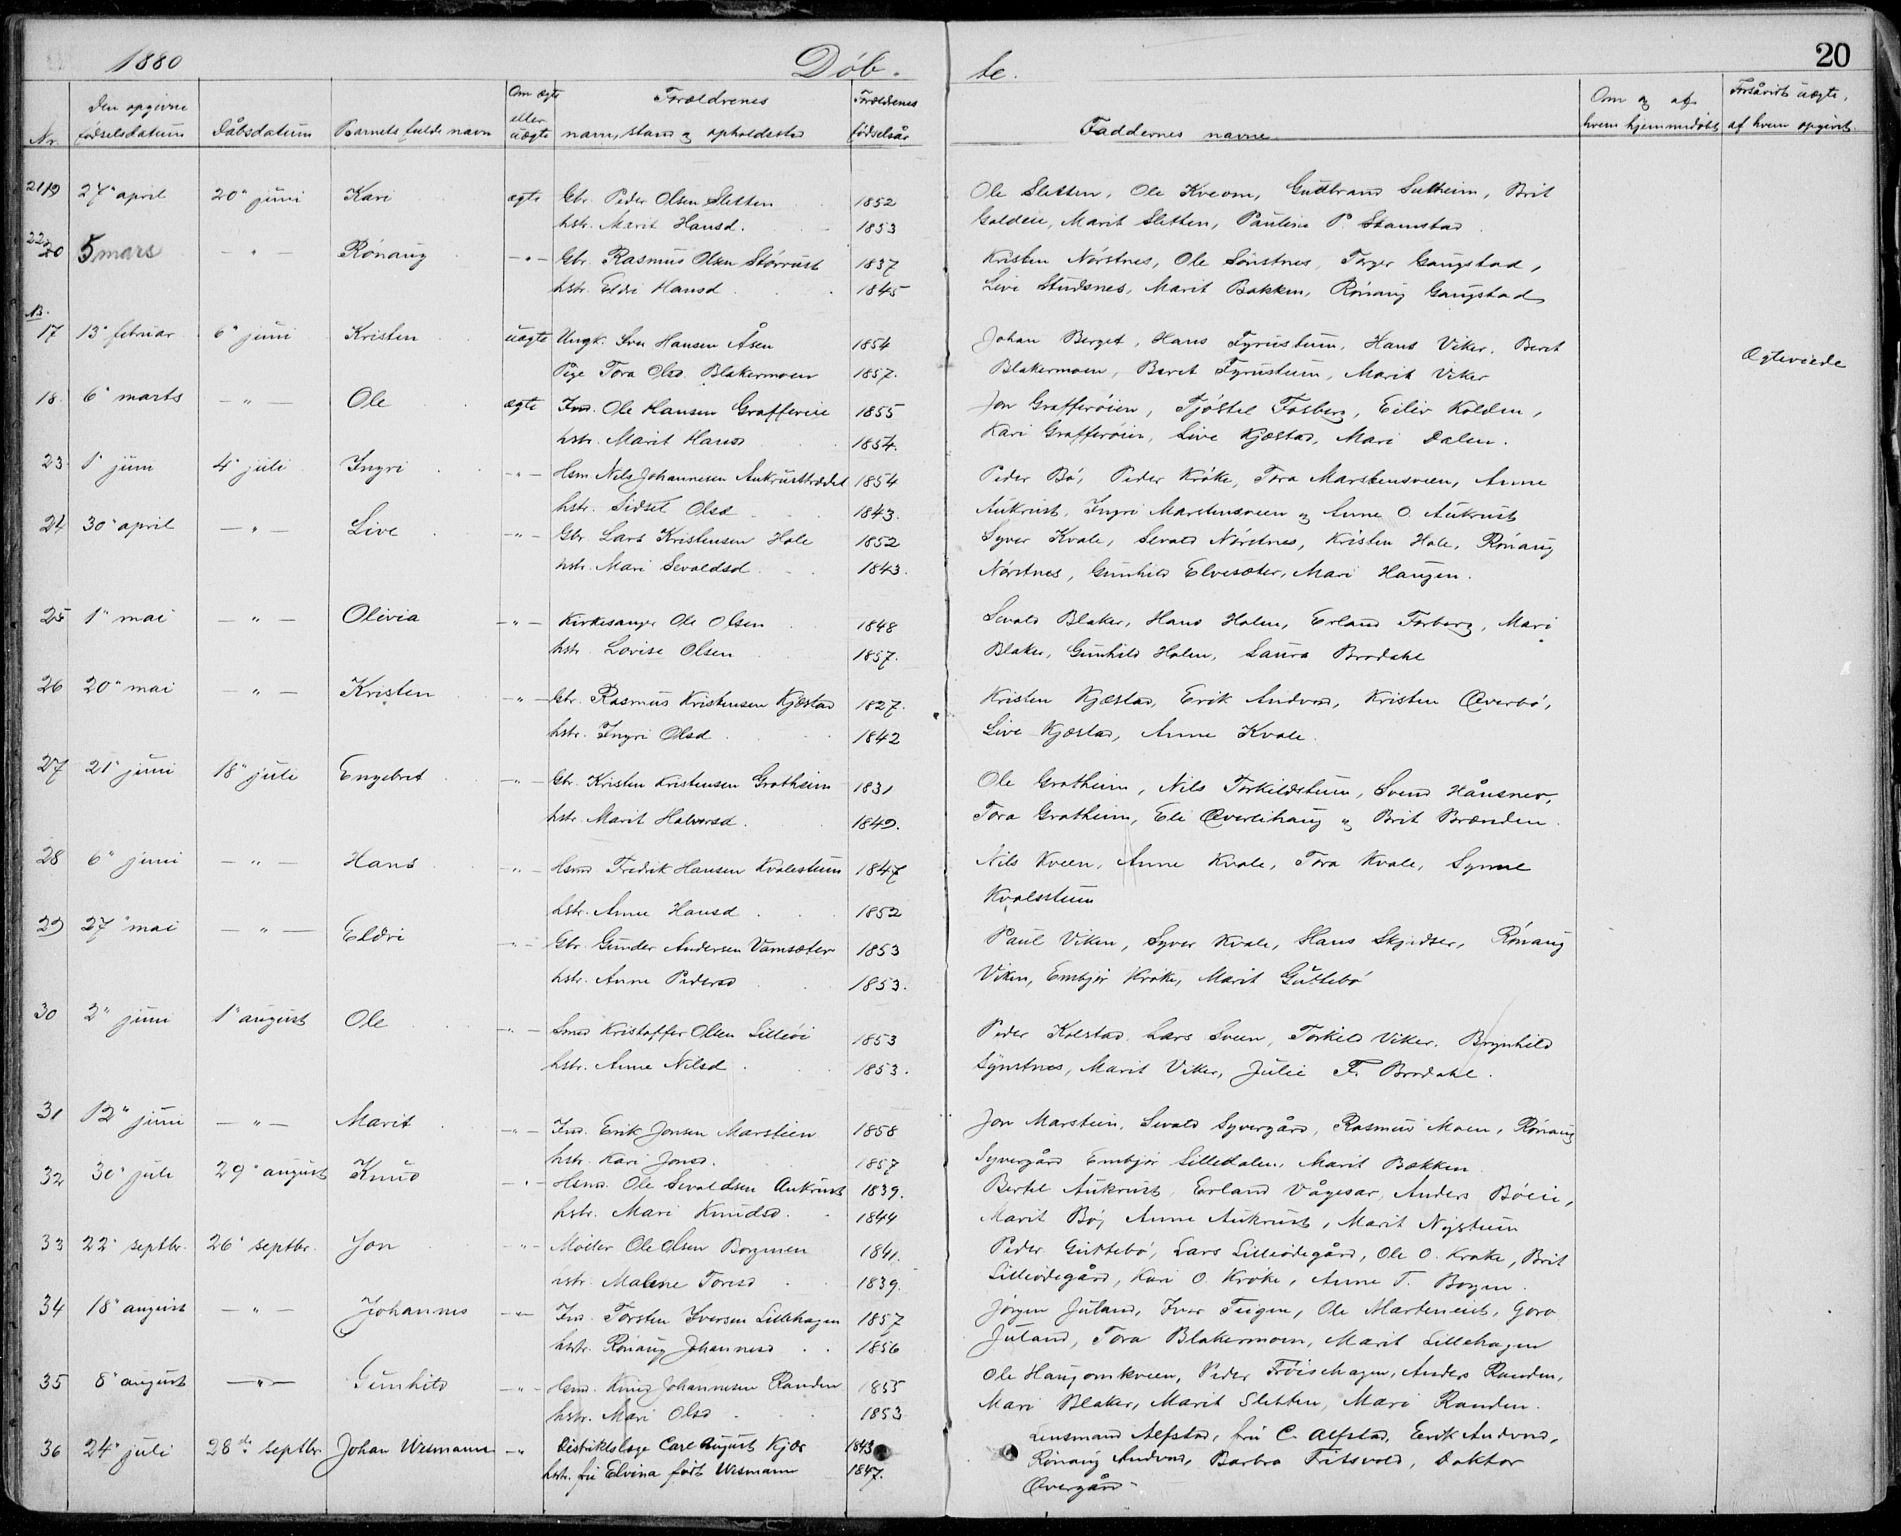 1880 Döb. te. 20
Nr. Den opgivne fødselsdatum Dåbsdatum Barnets fulde navn Om ægte eller uægte Forældrenes navn, stand og opholdssted Forældrenes fødselsår Faddernes navne Om og af hvem hjemmedøbt Forsåvidt uægte, af hvem opgivet.
21 19 27" april 20" juni Kari ægte Gbr. Peder Olsen Sletten 1852 Ole Sletten, Ole Kveom, Gudbrand Sulheim, Brit
hstr. Marit Hansd. 1853 Galdeie, Marit Sletten, Pauline P. Stamstad
22 20 5 mars — " — Rönaug — " — Gbr. Rasmus Olsen Störrust 1837 Kristen Nörstnes, Ole Sönstnes, Torger Gaupstad,
hstr. Eldri Hansd 1845 Live Sundsnes, Marit Bakken, Rönaug Gaupstad
17 13" februar 6" juni Kristen uægte Ungk. Iver Hansen Åsen 1854 Johan Berget, Hans Fyrustum, Hans Viker, Berit Ægteviede
Pige Tora Olsd. Blakermoen 1857. Blakermoen, Berit Fyrustum, Marit Viker
18. 6" marts — " — Ole ægte Ind. Ole Hansen Graffereie 1855 Jon Grafferöien, Tjöstel Fosberg, Eiliv Kolden,
hstr. Marit Hansd 1854. Kari Grafferöien, Live Kjæstad, Mari Dalen.
23 1" juni 4" juli Ingri — " — Hsm. Nils Johannesen Aukrusttrædet 1854 Peder Bö, Peder Kröke, Tora Marstensveen, Anne
hstr. Sidsel Olsd 1843. Aukrust, Ingri Marstensveen og Anne O. Aukrust
24 30" april — " — Live — " — Gbr. Lars Kristensen Hole 1852 Syver Kvale, Sevald Nörstnes, Kristen Hole, Rönaug
hstr. Mari Sevaldsd 1843. Nörstnes, Gunhild Elvesæter, Mari Haugen.
25 1" mai — " — Olivia — " — Kirkesanger Ole Olsen 1848 Sevald Blaker, Hans Holen, Erland Forberg, Mari
hstr. Lovise Olsen 1857. Blaker, Gunhild Holen, Laura Brodahl
26 20" mai — " — Kristen — " — Gbr. Rasmus Kristensen Kjæstad 1827. Kristen Kjæstad, Erik Andvord, Kristen Øverbö,
hstr. Ingri Olsd 1842 Live Kjæstad, Anne Kvale.
27 21" juni 18" juli Engebret — " — Gbr. Kristen Kristensen Grotheim 1831 Ole Grotheim, Nils Torkildstuen, Svend Hånsnar,
hstr. Marit Halvorsd. 1849. Tora Grotheim, Eli Øverlihaug og Brit Brenden.
28 6" juni — " — Hans — " — Hsmd Fredrik Hansen Kvalestuen 1847 Nils Kveen, Anne Kvale, Tora Kvale, Synne
hstr. Anne Hansd 1852 Kvalsstuen
29 27" mai — " — Eldri — " — Gbr. Gunder Andersen Vamsæter 1853 Paul Viken, Syver Kvale, Hans Skjedser, Rönaug
hstr. Anne Pedersd 1853. Viken, Embjör Kröke, Marit Guttebö
30 2" juni 1" august Ole — " — Smed Kristoffer Olsen Lilleöi 1853 Peder Kolstad, Lars Sveen, Torkild Viker, Brynhild
hstr. Anne Nilsd 1853. Synstnes, Marit Viker, Julie F. Brodahl.
31 12" juni — " — Marit — " — Ind. Erik Jonsen Marstein 1858 Jon Marstein, Sevald Syvergård, Rasmus Moen, Rönaug
hstr. Kari Jonsd. 1857 Syvergård Embjör Lilledalen, Marit Bakken.
32 30" juli 29" august Knud — " — Hsmd. Ole Sevaldsen Aukrust 1839. Bertel Aukrust, Erland Vågesar, Anders Böeie,
hstr. Mari Knudsd. 1844 Marit Bö, Anne Aukrust, Marit Nystuen
33 22" septbr. 26" septbr. Jon — " — Möller Ole Olsen Borgmen 1841. Peder Guttebö, Lars Lilleödegård, Ole O. Kroke, Brit
hstr. Malene Toresd 1839. Lilleödegård, Kari O. Kröke, Anne T. Borgen.
34 18" august — " — Johannes — " — Ind. Torsten Iversen Lillehagen 1857 Jörgen Juland, Iver Teigen, Ole Marteneid, Goro
hstr. Rönaug Johannesd 1856 Juland, Tora Blakermoen, Marit Lillehagen
35 8" august — " — Gunhild — " — Hsmd. Knud Johannesen Randen 1855 Ole Haugomkveen, Peder Fröisehagen, Anders Randen,
hstr. Mari Olsd 1853 Mari Blaker, Marit Sletten, Mari Randen.
36 24" juli 28de septbr. Johan Wesmann — " — Distriktslæge Carl August Kjös 1843 Lensmand Alfstad, fru C. Alfstad, Erik Andvord,
hstr. fru Elvina født Wesmann 1847. Rönaug Andvord, Barbra Fritsvold, Doktor
Övergård